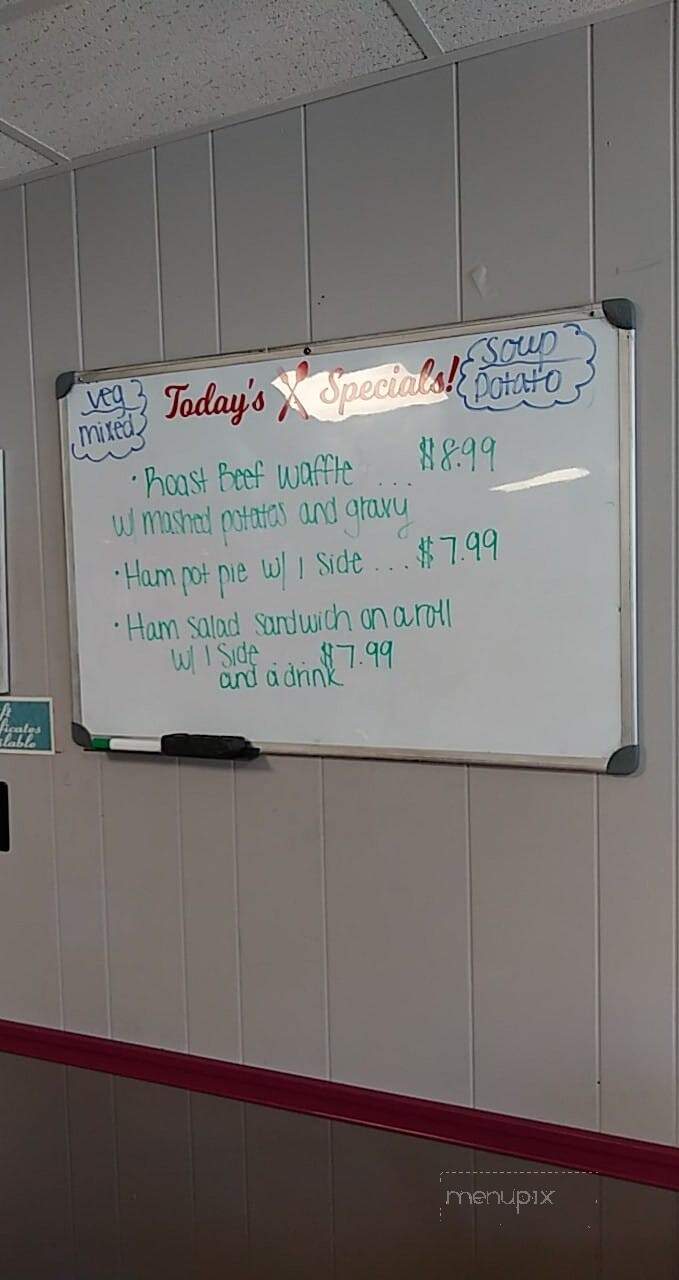 veg
mixed
Today's Specials!
Soup
Potato
· Roast Beef Waffle ... $8.99
w/ mashed potatos and gravy
· Ham pot pie w/ 1 side ... $7.99
· Ham salad sandwich on a roll
w/ 1 side $7.99
and a drink
menupix